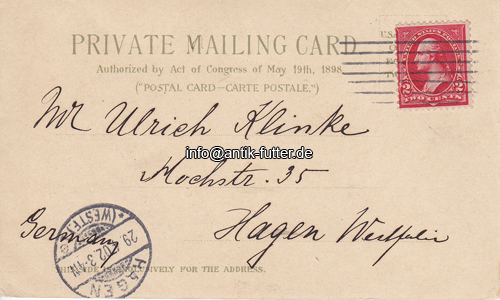 PRIVATE MAILING CARD.
Authorized by Act of Congress of May 19th, 1898.
("POSTAL CARD—CARTE POSTALE.")
2 TWO CENTS 2
Mr Ulrich Klinke
info@antik-futter.de
Hochstr. 35
Hagen Westfalen
Germany
HAGEN (WESTF.)
29 02.3-4N
THIS SIDE IS EXCLUSIVELY FOR THE ADDRESS.